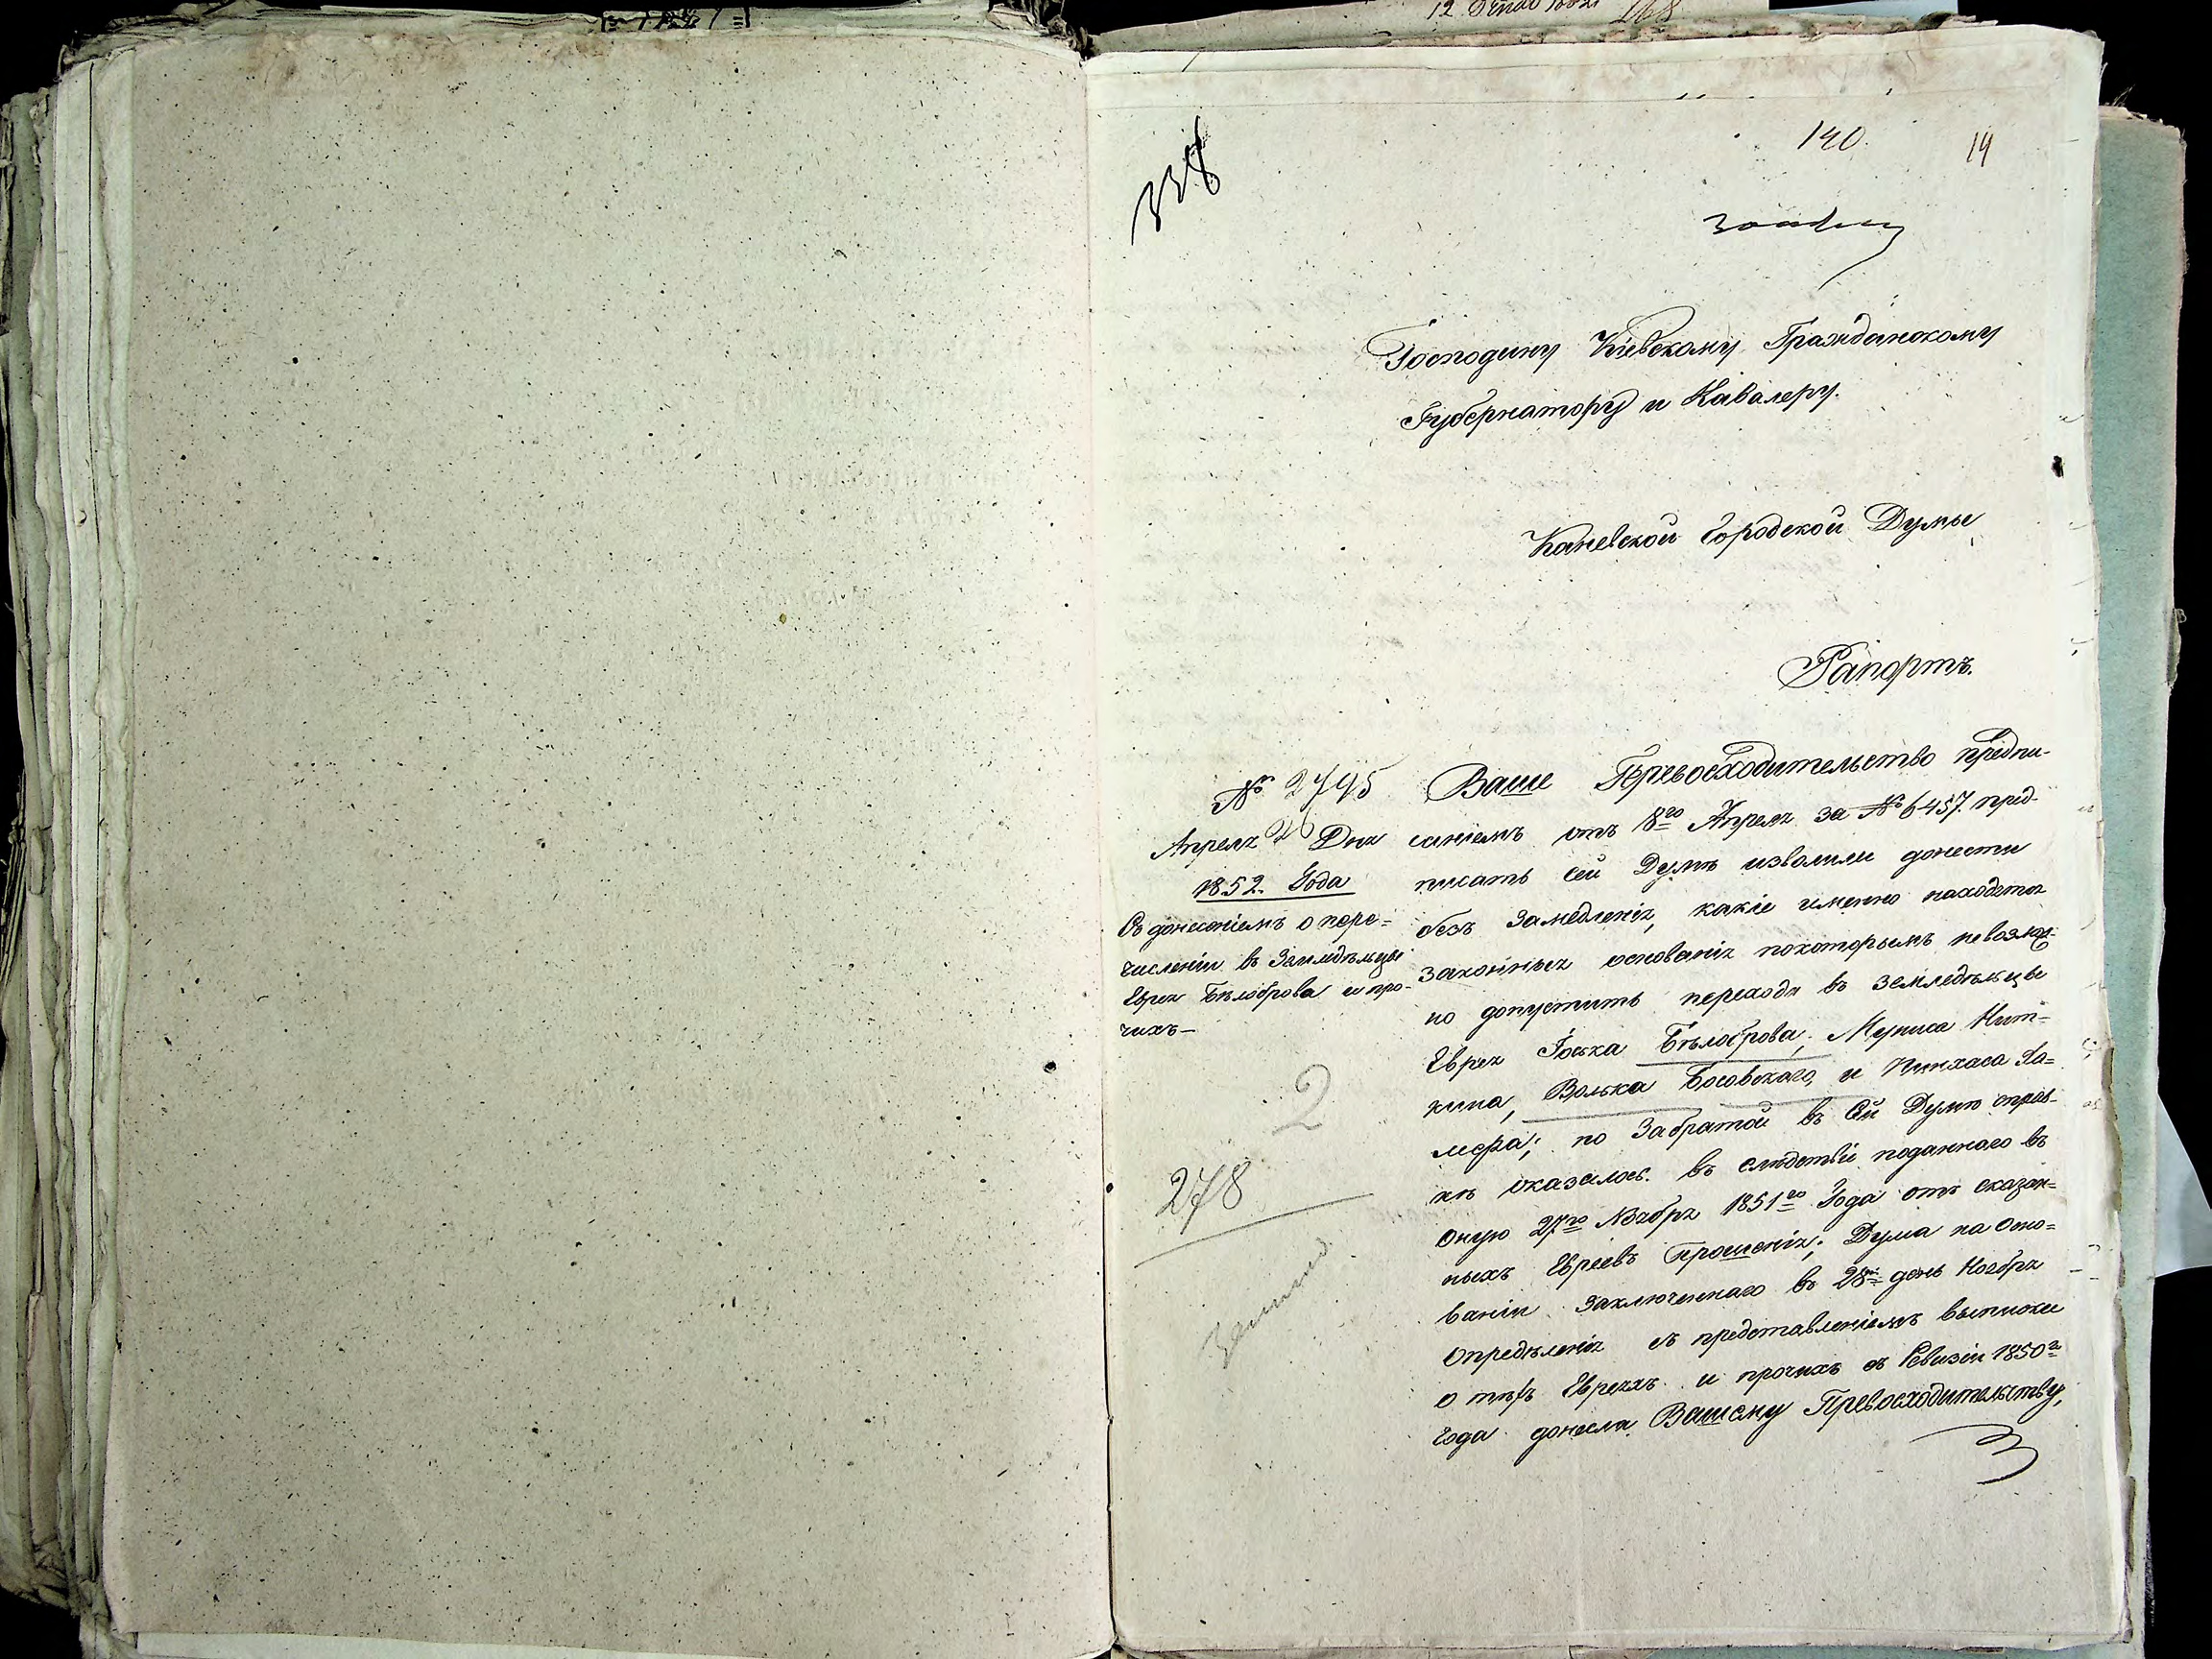 140.
14
338
Господину Кіевскому Гражданскому
Губернатору и Кавалеру.
Каневской Городской Думы
Рапортъ.
№ 2795
Апреля 26 Дня
1852. Года
Съ донесеніемъ о пере=
численіи въ Земледѣльцы
Еврея Бѣлоброва и про-
чихъ—
2
278
Ваше Превосходительство предпи-
саніемъ отъ 8го Апреля за № 6457. пред-
писать сей Думѣ изволили донести
безъ Замедленія, какіе именно находятся
законныя основанія покоторымъ невозмож-
но допустить перехода въ земледѣльцы
Еврея Іоська Бѣлоброва, Мениса Нит=
кина, Волька Босовскаго, и Пинхаса Ха=
мера; по Забратой въ Сей Думѣ справ-
кѣ оказалось. въ слѣдствіе поданнаго въ
оную 27го Ноября 1851го Года отъ сказан=
ныхъ Евреевъ Прошенія; Дума на осно=
ваніи заключеннаго въ 28й день Ноября
опредѣленія съ представленіемъ выписки
о тѣхъ Евреяхъ и прочихъ съ Ревизіи 1850го
года донесла Вашему Превосходительству,